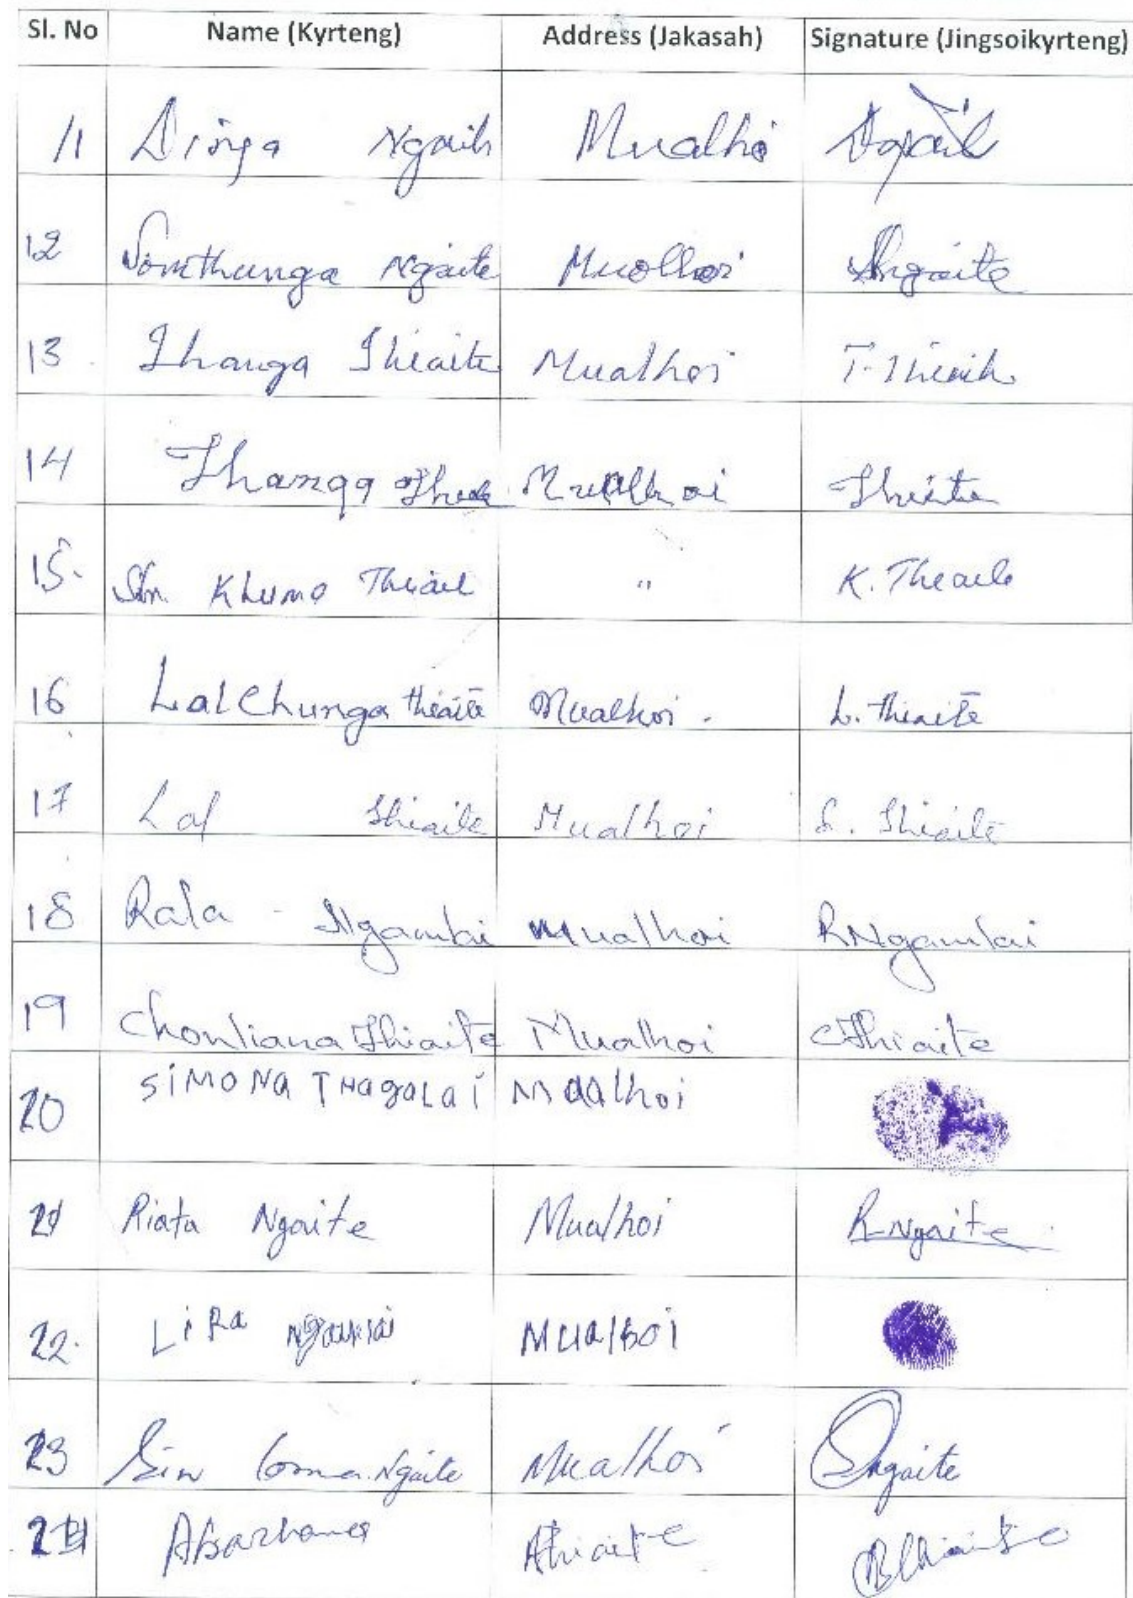 Sl. No Name (Kyrteng) Address (Jakasah) Signature (Jingsoikyrteng)
11 Dinga Ngaih Mualhoi
12 Somthunga Ngaite Muolhoi Sngaite
13 Thanga Thiaite Mualhoi T. Thiaite
14 Thanga Mualhoi Thiaite
15. Khuma Thiaite " K. Thiaite
16 Lalchunga thiaite Mualhoi. L. thiaite
17 Lal Thiaite Mualhoi L. Thiaite
18 Rala - Ngamlai Mualhoi RNgamlai
19 Chonliana Thiaite Mualhoi CThiaite
20 SiMONA THagaLai Maalhoi
21 Riata Ngaite Mualhoi R-Ngaite
22. LiRa Ngamlai Mualhoi
23 Ngaite Mualhoi Sngaite
24 Thiaite